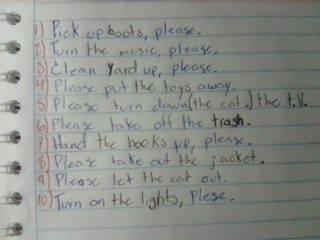 1) Pick up boots, please.
2) Turn the music, please.
3) Clean Yard up, please.
4) Please put the toys away.
5) Please turn down (the cat.) the t.V.
6) Please take off the trash.
7) Hand the books up, please.
8) Please take out the jacket.
9) Please let the cat out.
10) Turn on the lights, Plese.